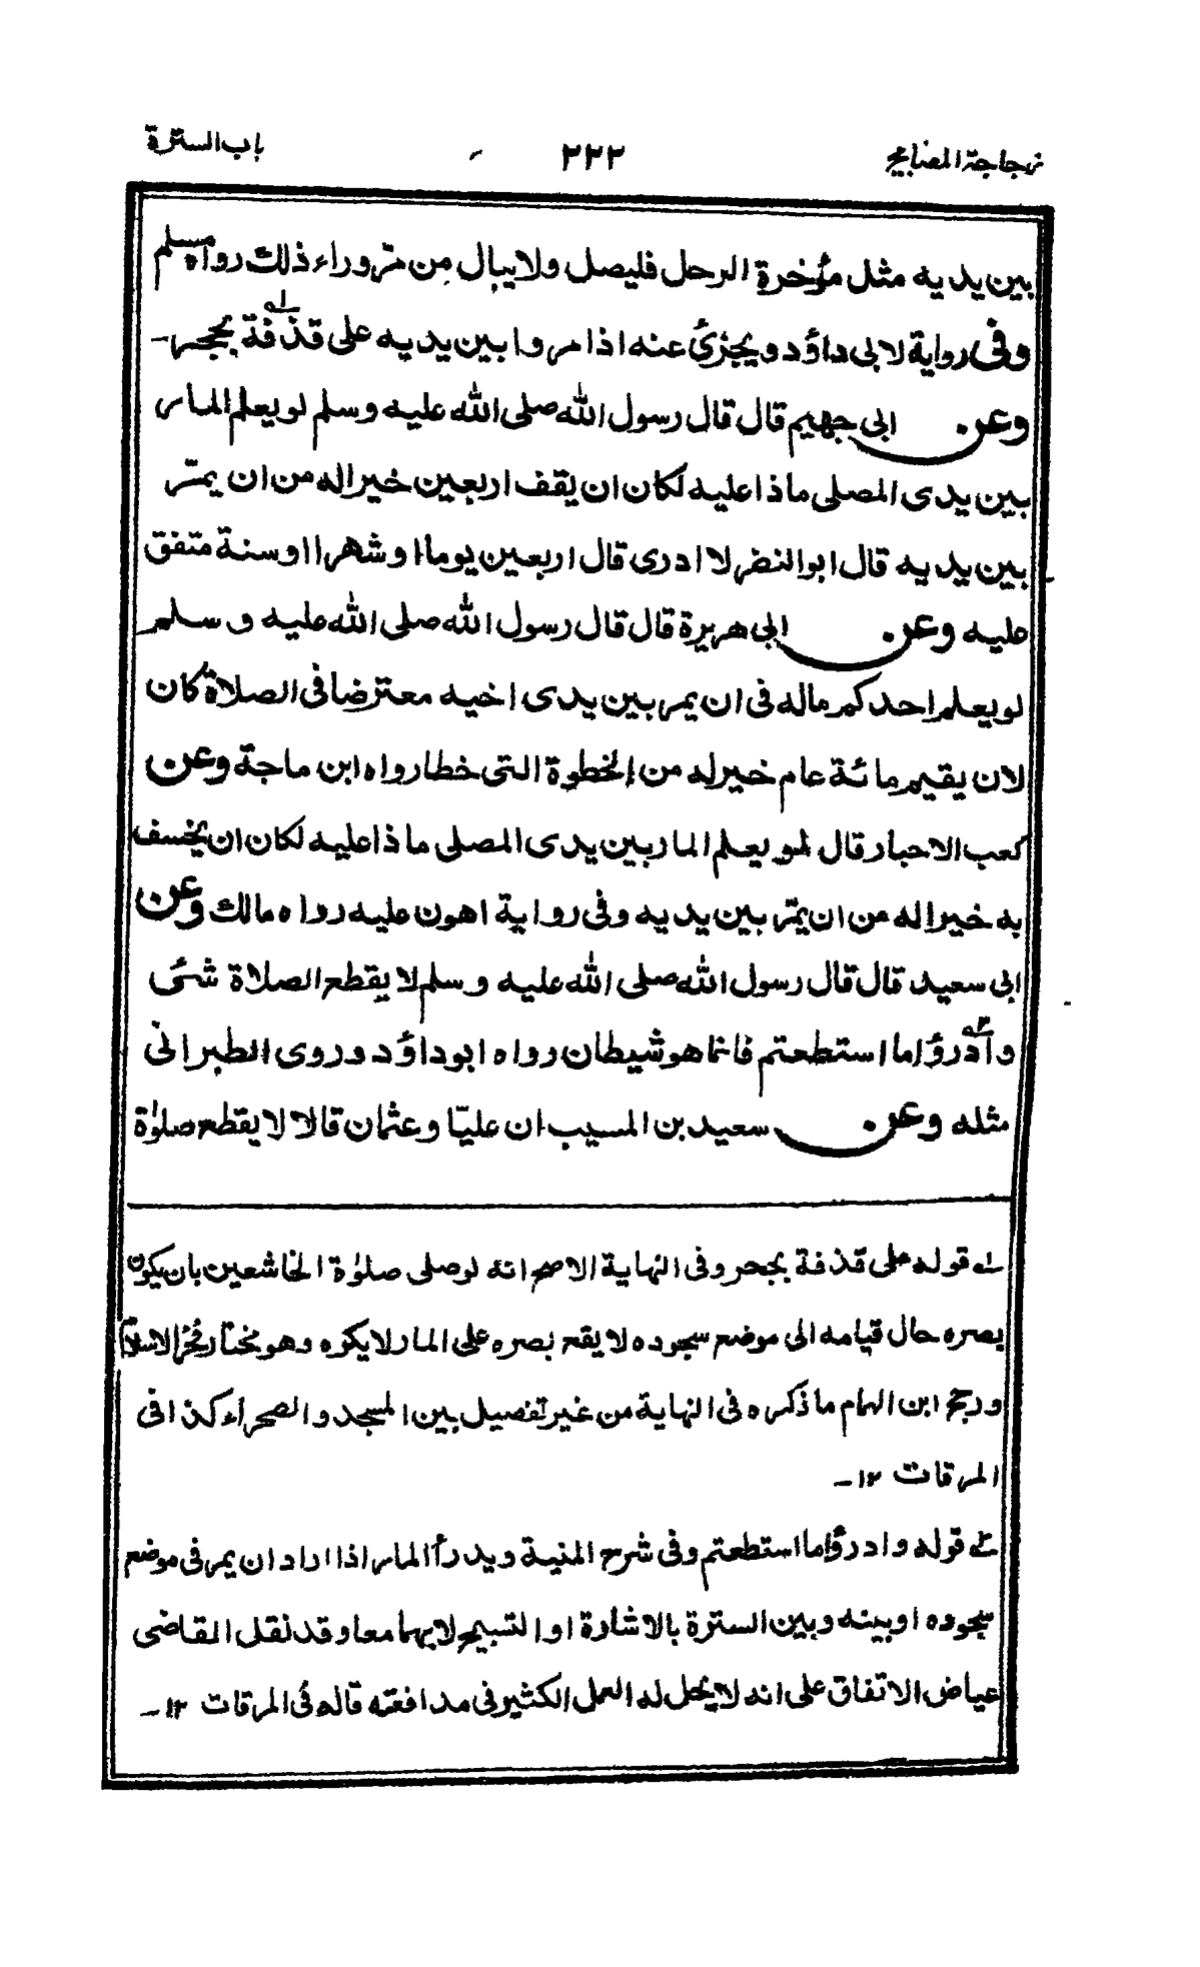 زجاجة المصابيح ٢٢٢ باب السترة
بين يديه مثل مؤخرة الرحل فليصل ولا يبال من مرّ وراء ذلك رواه مسلم
وفى رواية لابى داؤد ويجزئ عنه اذا مروا بين يديه على قذفة بحجر۔
وعن ابى جهيم قال قال رسول الله صلى الله عليه وسلم لو يعلم المار
بين يدى المصلى ماذا عليه لكان ان يقف اربعين خيرا له من ان يمرّ
بين يديه قال ابو النضر لا ادرى قال اربعين يوما او شهرا او سنة متفق
عليه وعن ابى هريرة قال قال رسول الله صلى الله عليه وسلم
لو يعلم احدكم ماله فى ان يمر بين يدى اخيه معترضا فى الصلاة كان
لان يقيم مائة عام خير له من الخطوة التى خطا رواه ابن ماجة وعن
كعب الاحبار قال لو يعلم المار بين يدى المصلى ماذا عليه لكان ان يخسف
به خيرا له من ان يمرّ بين يديه وفى رواية اهون عليه رواه مالك وعن
ابى سعيد قال قال رسول الله صلى الله عليه وسلم لا يقطع الصلاة شئى
وادرؤا ما استطعتم فانما هو شيطان رواه ابو داؤد وروى الطبرانى
مثله وعن سعيد بن المسيب ان عليّا وعثمان قالا لا يقطع صلوٰة
لـه قوله على قذفة بحجر وفى النهاية الاصح انه لو صلى صلوٰة الخاشعين بان يكون
بصره حال قيامه الى موضع سجوده لا يقع بصره على المار لا يكره وهو مختار فخر الاسلام
ورجح ابن الهمام ما ذكره فى النهاية من غير تفصيل بين المسجد والصحراء كذا فى
المرقات ١٢۔
قوله وادرؤا ما استطعتم وفى شرح المنية ويدرأ المار اذا اراد ان يمر فى موضع
سجوده او بينه وبين السترة بالاشارة او التسبيح لا بهما معا وقد نقل القاضى
عياض الاتفاق على انه لا يحل له العمل الكثير فى مدافعته قاله فى المرقات ١٢۔